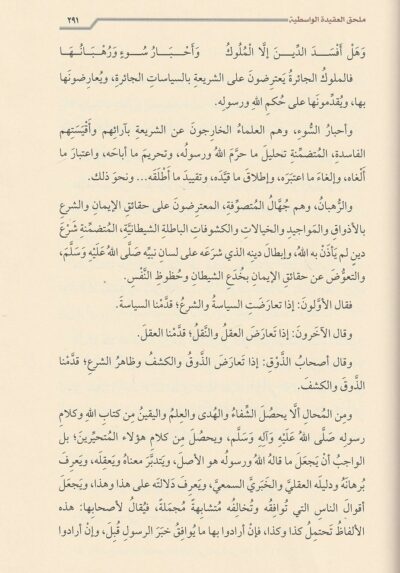 ملحق العقيدة الواسطية ٢٩١
وَهَلْ أَفْسَدَ الدِّينَ إِلَّا الْمُلُوكُ وَأَحْبَارُ سُوءٍ وَرُهْبَانُهَا
فالملوكُ الجائرةُ يَعترِضونَ على الشريعةِ بالسياساتِ الجائرةِ، ويُعارِضونَها
بها، ويُقدِّمونَها على حُكمِ اللهِ ورسولِه.
وأحبارُ السُّوءِ، وهم العلماءُ الخارجونَ عن الشريعةِ بآرائِهم وأَقْيِسَتِهم
الفاسدةِ، المُتضمِّنةِ تحليلَ ما حرَّمَ اللهُ ورسولُه، وتحريمَ ما أباحَه، واعتبارَ ما
أَلْغاه، وإلغاءَ ما اعتبَرَه، وإطلاقَ ما قيَّدَه، وتقييدَ ما أَطْلَقَه... ونحوَ ذلك.
والرُّهبانُ، وهم جُهَّالُ المُتصوِّفةِ، المعترِضونَ على حقائقِ الإيمانِ والشرعِ
بالأذواقِ والمَواجيدِ والخيالاتِ والكشوفاتِ الباطلةِ الشيطانيَّةِ، المُتضمِّنةِ شَرْعَ
دينٍ لم يَأذَنْ به اللهُ، وإبطالَ دينِه الذي شرَعَه على لسانِ نبيِّه صَلَّى اللهُ عَلَيْهِ وَسَلَّمَ،
والتعوُّضَ عن حقائقِ الإيمانِ بخُدَعِ الشيطانِ وحُظوظِ النَّفْسِ.
فقال الأوَّلونَ: إذا تعارَضَتِ السياسةُ والشرعُ؛ قدَّمْنا السياسةَ.
وقال الآخَرونَ: إذا تَعارَضَ العقلُ والنَّقلُ؛ قدَّمْنا العقلَ.
وقال أصحابُ الذَّوْقِ: إذا تَعارَضَ الذَّوقُ والكشفُ وظاهرُ الشرعِ؛ قدَّمْنا
الذَّوقَ والكشفَ.
ومِن المُحالِ ألَّا يحصُلَ الشِّفاءُ والهُدى والعِلمُ واليقينُ مِن كتابِ اللهِ وكلامِ
رسولِه صَلَّى اللهُ عَلَيْهِ وَآلِهِ وَسَلَّم، ويحصُلَ مِن كلامِ هؤلاء المُتحيِّرينَ؛ بل
الواجبُ أنْ يَجعَلَ ما قالهُ اللهُ ورسولُه هو الأصلَ، ويَتدبَّرَ معناهُ ويَعقِلَه، ويَعرِفَ
بُرهانَهُ ودليلَه العقليَّ والخَبَريَّ السمعيَّ، ويَعرِفَ دَلالتَه على هذا وهذا، ويَجعَلَ
أقوالَ الناسِ التي تُوافِقُه وتُخالِفُه مُتشابِهةً مُجمَلةً، فيُقالُ لأصحابِها: هذه
الألفاظُ تَحتمِلُ كذا وكذا، فإنْ أرادوا بها ما يُوافِقُ خبَرَ الرسولِ قُبِلَ، وإنْ أرادوا